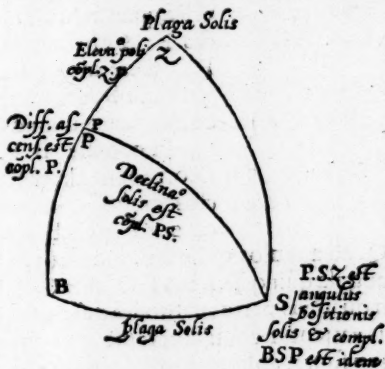 Plaga Solis
Z
Elevaº poli
cõpl. Z. P.
Diff. as-
cens. est
cõpl. P.
P
P
Declinaº
solis est
cõpl. PS.
B
S
plaga Solis
P.S.Z. est
angulus
positionis
solis & compl.
BSP est idem